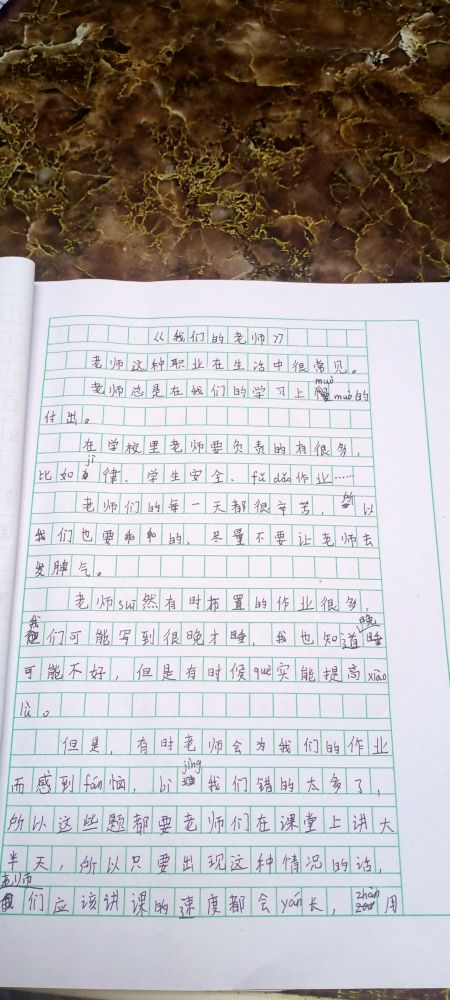 《我们的老师》
老师这种职业在生活中很常见。
老师总是在我们的学习上muò muò的
付出。
在学校里老师要负责的有很多，
比如jì律、学生安全、fǔ dǎo作业……
老师们的每一天都很辛苦，所以
我们也要乖乖的，尽量不要让老师去
发脾气。
老师suī然有时布置的作业很多，
我们可能写到很晚才睡，我也知道晚睡
可能不好，但是有时候què实能提高xiào
lǜ。
但是，有时老师会为我们的作业
而感到fán恼，bì jìng我们错的太多了，
所以这些题都要老师们在课堂上讲大
半天，所以只要出现这种情况的话，
老师们应该讲课的速度都会yán长，zhàn用